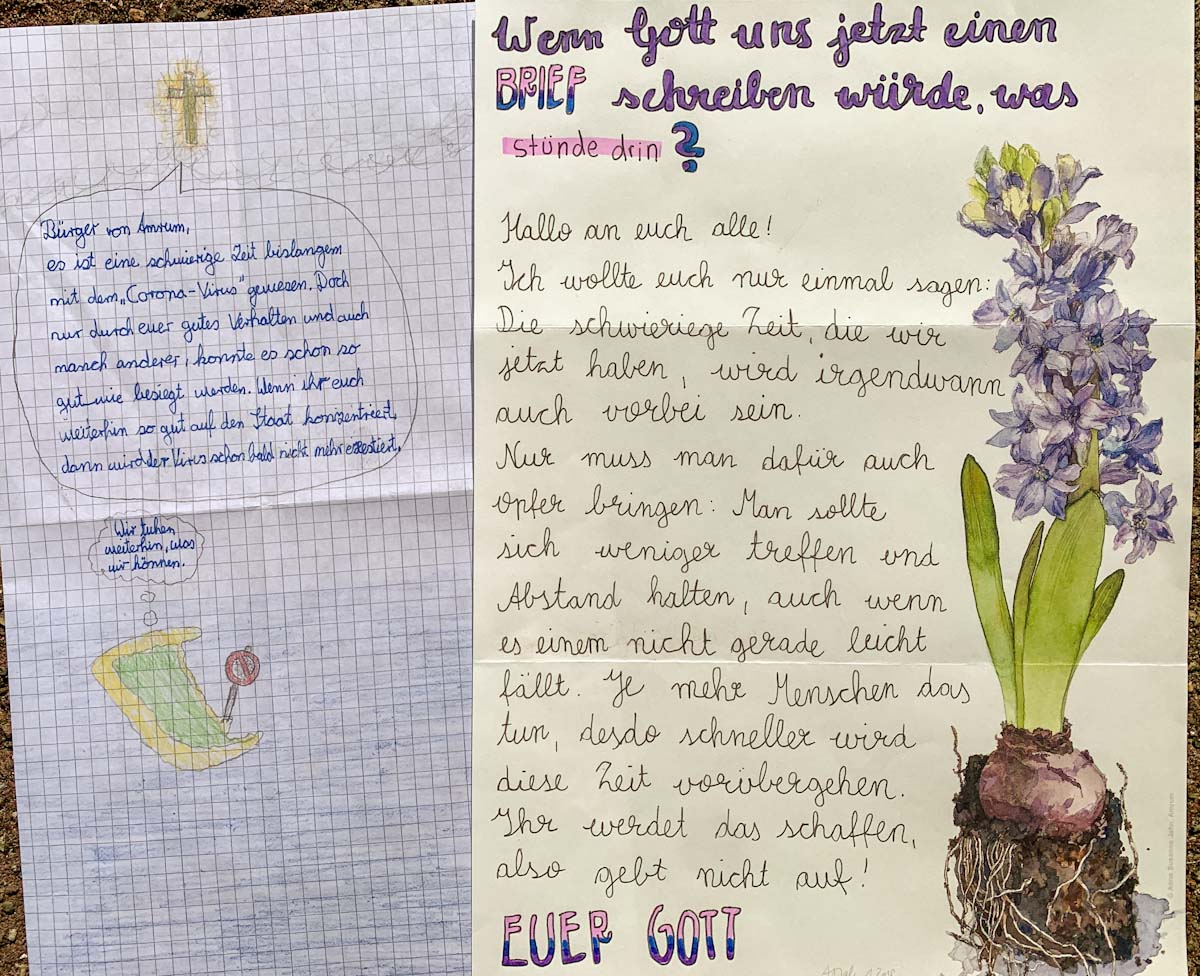 Bürger von Amrum,
es ist eine schwierige Zeit bislangem
mit dem „Corona-Virus" gewesen. Doch
nur durch euer gutes Verhalten und auch
manch anderer, konnte es schon so
gut wie besiegt werden. Wenn ihr euch
weiterhin so gut auf den Staat konzentriert,
dann wird der Virus schon bald nicht mehr existiert.
Wir tuhen
weiterhin, was
wir können.
Wenn Gott uns jetzt einen
BRIEF schreiben würde, was
stünde drin ?
Hallo an euch alle!
Ich wollte euch nur einmal sagen:
Die schwieriege Zeit, die wir
jetzt haben, wird irgendwann
auch vorbei sein.
Nur muss man dafür auch
Opfer bringen: Man sollte
sich weniger treffen und
Abstand halten, auch wenn
es einem nicht gerade leicht
fällt. Je mehr Menschen das
tun, desdo schneller wird
diese Zeit vorübergehen.
Ihr werdet das schaffen,
also gebt nicht auf!
EUER GOTT
© Anna Susanne Jahn, Amrum